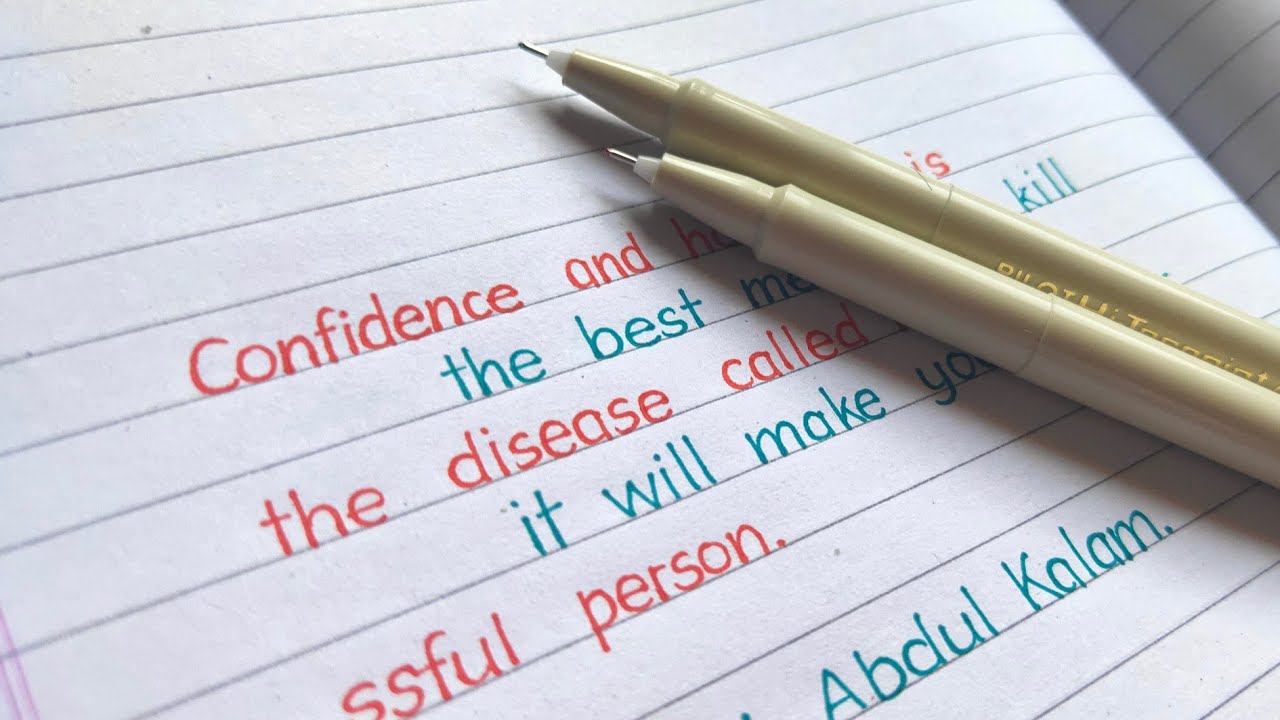 Confidence and is
the best kill
the disease called
it will make
ssful person.
Abdul Kalam.
PILOT